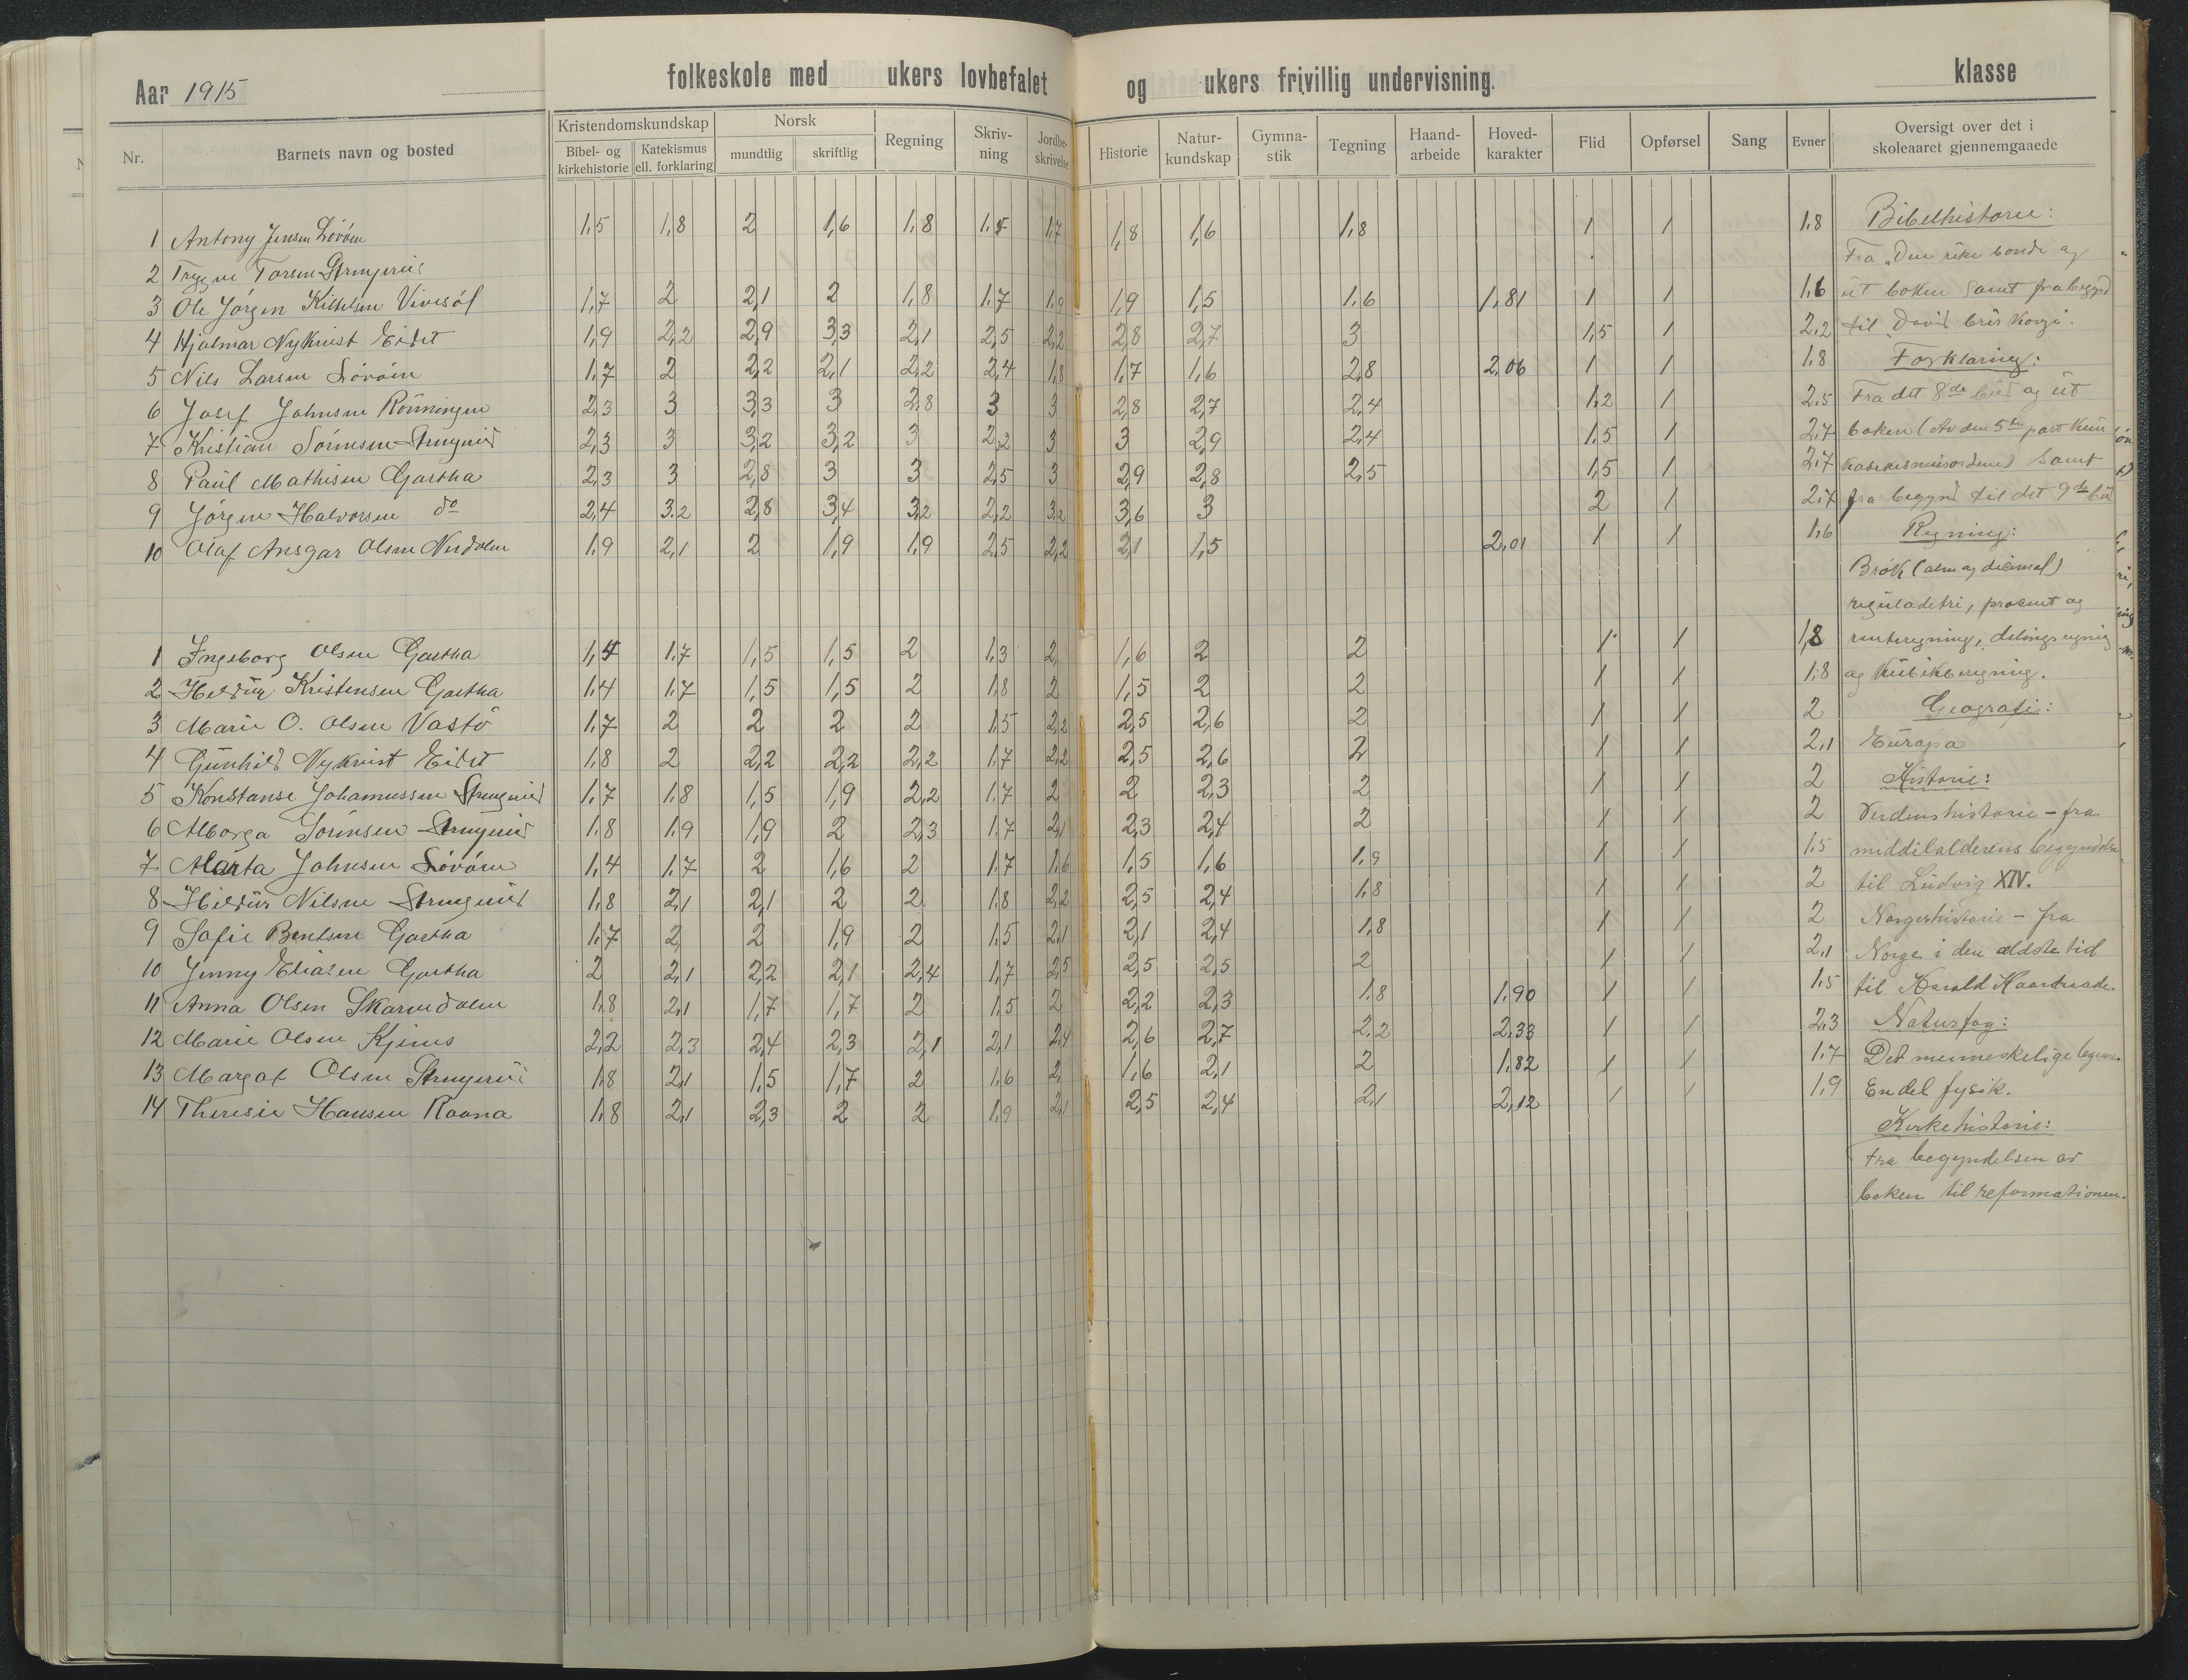 Aar 1915 folkeskole med ukers lovbefalet og ukers frivillig undervisning. klasse
Nr. Barnets navn og bosted Kristendomskundskap Bibel- og kirkehistorie Katekismus ell. forklaring Norsk mundtlig skriftlig Regning Skriv-ning Jordbe-skrivelse Historie Natur-kundskap Gymna-stik Tegning Haand-arbeide Hoved-karakter Flid Opførsel Sang Evner Oversigt over det i skoleaaret gjennemgaaede
1 Antony Jensen 1,5 1,8 2 1,6 1,8 1,5 1,7 1,8 1,6 1,8 1 1 1,8
2 Trygve Torsen
3 Ole Jörgen 1,7 2 2,1 2 1,8 1,7 1,9 1,9 1,5 1,6 1,81 1 1 1,6
4 Hjalmar Nykvist Eidet 1,9 2,2 2,9 3,3 2,1 2,5 2,2 2,8 2,7 3 1,5 1 2,2
5 Nils Larsen 1,7 2 2,2 2,1 2,2 2,4 1,8 1,7 1,6 2,8 2,06 1 1 1,8
6 Josef Johnsen Rönningen 2,3 3 3,3 3 2,8 3 3 2,8 2,7 2,4 1,2 1 2,5
7 Kristian Sörensen 2,3 3 3,2 3,2 3 2,2 3 3 2,9 2,4 1,5 1 2,7
8 Paul Mathisen Gartha 2,3 3 2,8 3 3 2,5 3 2,9 2,8 2,5 1,5 1 2,7
9 Jörgen Halvorsen do 2,4 3,2 2,8 3,4 3,2 2,2 3,2 3,6 3 2 1 2,7
10 Olaf Ansgar Olsen 1,9 2,1 2 1,9 1,9 2,5 2,2 2,1 1,5 2,01 1 1 1,6
1 Ingeborg Olsen Gartha 1,4 1,7 1,5 1,5 2 1,3 2 1,6 2 2 1 1 1,8
2 Hildur Kristensen Gartha 1,4 1,7 1,5 1,5 2 1,8 2 1,5 2 2 1 1 1,8
3 Marie O. Olsen Vastö 1,7 2 2 2 2 1,5 2,2 2,5 2,6 2 1 1 2
4 Gunhild Nykvist Eidet 1,8 2 2,2 2,2 2,2 1,7 2,2 2,5 2,6 2 1 1 2,1
5 Konstanse Johannessen 1,7 1,8 1,5 1,9 2,2 1,7 2 2 2,3 2 1 1 2
6 Alborga Sörensen 1,8 1,9 1,9 2 2,3 1,7 2,1 2,3 2,4 2 1 1 2
7 Marta Johnsen 1,4 1,7 2 1,6 2 1,7 1,6 1,5 1,6 1,9 1 1 1,5
8 Hildur Nilsen 1,8 2,1 2,1 2 2 1,8 2,2 2,5 2,4 1,8 1 1 2
9 Sofie Bentsen Gartha 1,7 2 2 1,9 2 1,5 2,1 2,1 2,4 1,8 1 1 2
10 Jenny Eliasen Gartha 2 2,1 2,2 2,1 2,4 1,7 2,5 2,5 2,5 2 1 1 2,1
11 Anna Olsen Skarvedalen 1,8 2,1 1,7 1,7 2 1,5 2 2,2 2,3 1,8 1,90 1 1 1,5
12 Marie Olsen Kjenes 2,2 2,3 2,4 2,3 2,1 2,1 2,4 2,6 2,7 2,2 2,33 1 1 2,3
13 Margot Olsen 1,8 2,1 1,5 1,7 2 1,6 2 1,6 2,1 2 1,82 1 1 1,7
14 Theresie Hansen Raana 1,8 2,1 2,3 2 2 1,9 2,1 2,5 2,4 2,1 2,12 1 1 1,9
Bibelhistorie:
Fra "Den rike bonde og
ut boken samt fra begynd
til David blir konge.
Forklaring:
Fra det 8de bud og ut
boken (Av den 5te part kun
katekismusordene) samt
fra begynd til det 9de bud
Regning:
Brök (alm og decimal)
reguladetri, procent og
renteregning, delingsregning
og kubikberegning.
Geografi:
Europa
Historie:
Verdenshistorie - fra
middelalderens begyndelse
til Ludvig XIV.
Norgeshistorie - fra
Norge i den ældste tid
til Harald Haardraade.
Naturfag:
Det menneskelige
En del fysik.
Kirkehistorie:
Fra begyndelsen av
boken til reformationen.